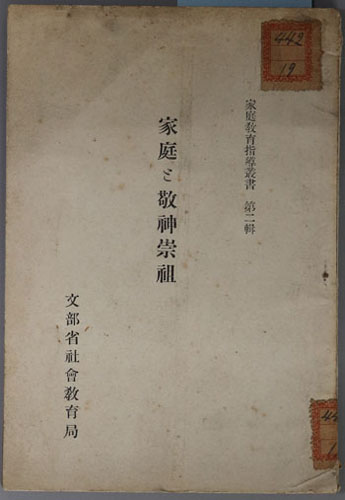 家庭敎育指導叢書 第二輯
家庭と敬神崇祖
文部省社會敎育局
442
19